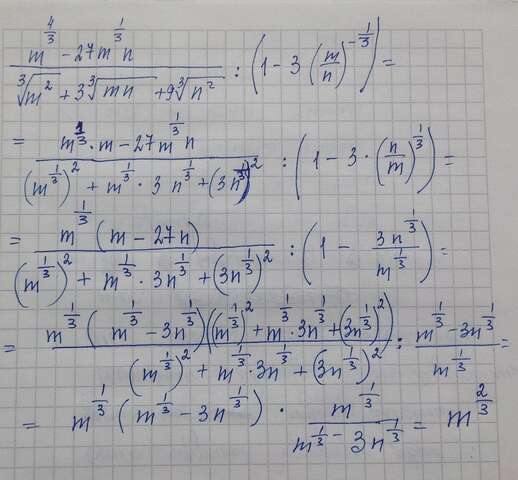 \frac{m^{\frac{4}{3}} - 27m^{\frac{1}{3}}n}{\sqrt[3]{m^2} + 3\sqrt[3]{mn} + 9\sqrt[3]{n^2}} : \left(1 - 3\left(\frac{m}{n}\right)^{-\frac{1}{3}}\right) =
= \frac{m^{\frac{1}{3}} \cdot m - 27m^{\frac{1}{3}}n}{(m^{\frac{1}{3}})^2 + m^{\frac{1}{3}} \cdot 3n^{\frac{1}{3}} + (3n^{\frac{1}{3}})^2} : \left(1 - 3 \cdot \left(\frac{n}{m}\right)^{\frac{1}{3}}\right) =
= \frac{m^{\frac{1}{3}}(m - 27n)}{(m^{\frac{1}{3}})^2 + m^{\frac{1}{3}} \cdot 3n^{\frac{1}{3}} + (3n^{\frac{1}{3}})^2} : \left(1 - \frac{3n^{\frac{1}{3}}}{m^{\frac{1}{3}}}\right) =
= \frac{m^{\frac{1}{3}}(m^{\frac{1}{3}} - 3n^{\frac{1}{3}})((m^{\frac{1}{3}})^2 + m^{\frac{1}{3}} \cdot 3n^{\frac{1}{3}} + (3n^{\frac{1}{3}})^2)}{(m^{\frac{1}{3}})^2 + m^{\frac{1}{3}} \cdot 3n^{\frac{1}{3}} + (3n^{\frac{1}{3}})^2} : \frac{m^{\frac{1}{3}} - 3n^{\frac{1}{3}}}{m^{\frac{1}{3}}} =
= m^{\frac{1}{3}}(m^{\frac{1}{3}} - 3n^{\frac{1}{3}}) \cdot \frac{m^{\frac{1}{3}}}{m^{\frac{1}{3}} - 3n^{\frac{1}{3}}} = m^{\frac{2}{3}}